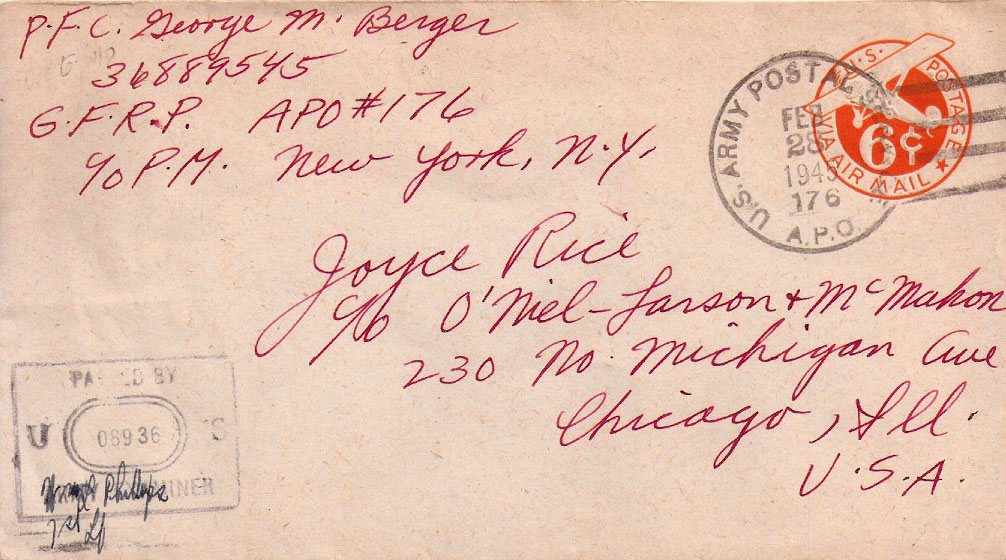 P.F.C. George M. Berger
36889545
G.F.R.P. APO #176
c/o P.M. New York, N.Y.
U.S. ARMY POSTAL
FEB
28
1945
176
A.P.O.
U.S. POSTAGE
6¢
VIA AIR MAIL
Joyce Rice
c/o O'Niel-Larson & McMahon
230 No. Michigan Ave
Chicago, Ill.
U.S.A.
PASSED BY
U 08936 S
Phillips
1st Lt